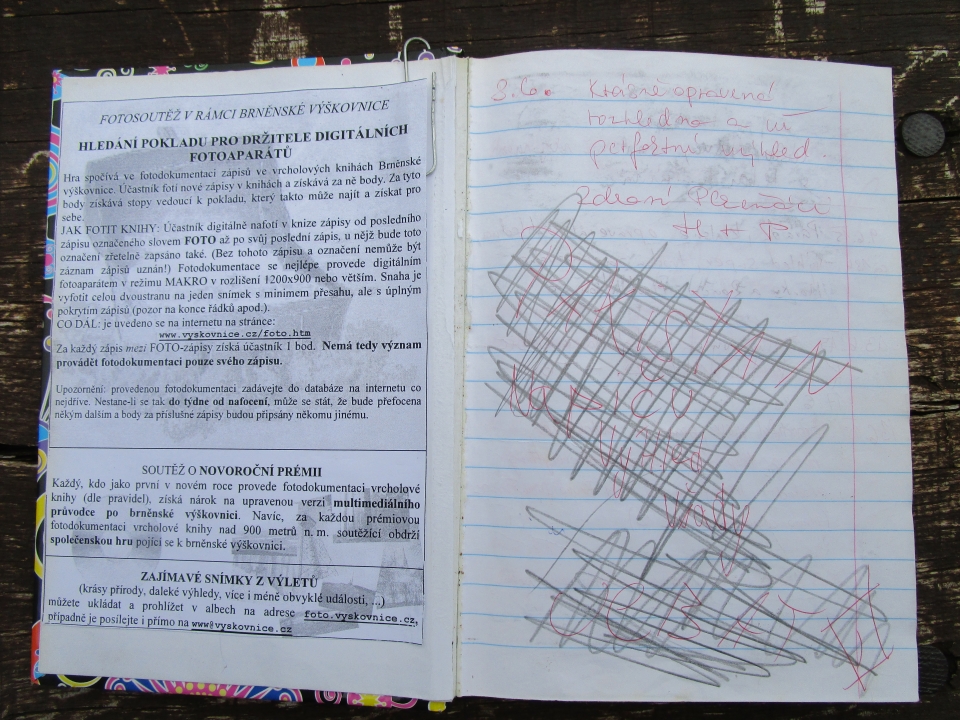 FOTOSOUTĚŽ V RÁMCI BRNĚNSKÉ VÝŠKOVNICE
HLEDÁNÍ POKLADU PRO DRŽITELE DIGITÁLNÍCH
FOTOAPARÁTŮ
Hra spočívá ve fotodokumentaci zápisů ve vrcholových knihách Brněnské
výškovnice. Účastník fotí nové zápisy v knihách a získává za ně body. Za tyto
body získává stopy vedoucí k pokladu, který takto může najít a získat pro
sebe.
JAK FOTIT KNIHU: Účastník digitálně nafotí v knize zápisy od posledního
zápisu označeného slovem FOTO až po svůj poslední zápis, u nějž bude toto
označení zřetelně zapsáno také. (Bez tohoto zápisu a označení nemůže být
záznam zápisů uznán!) Fotodokumentace se nejlépe provede digitálním
fotoaparátem v režimu MAKRO v rozlišení 1200x900 nebo větším. Snaha je
vyfotit celou dvoustranu na jeden snímek s minimem přesahu, ale s úplným
pokrytím zápisů (pozor na konce řádků apod.).
CO DÁL: je uvedeno se na internetu na stránce:
www.vyskovnice.cz/foto.htm
Za každý zápis mezi FOTO-zápisy získá účastník 1 bod. Nemá tedy význam
provádět fotodokumentaci pouze svého zápisu.
Upozornění: provedenou fotodokumentaci zadávejte do databáze na internetu co
nejdříve. Nestane-li se tak do týdne od nafocení, může se stát, že bude přefocena
někým dalším a body za příslušné zápisy budou připsány někomu jinému.
SOUTĚŽ O NOVOROČNÍ PRÉMII
Každý, kdo jako první v novém roce provede fotodokumentaci vrcholové
knihy (dle pravidel), získá nárok na upravenou verzi multimediálního
průvodce po brněnské výškovnici. Navíc, za každou prémiovou
fotodokumentaci vrcholové knihy nad 900 metrů n. m. soutěžící obdrží
společenskou hru pojící se k brněnské výškovnici.
ZAJÍMAVÉ SNÍMKY Z VÝLETŮ
(krásy přírody, daleké výhledy, více i méně obvyklé události, ...)
můžete ukládat a prohlížet v albech na adrese foto.vyskovnice.cz,
případně je posílejte i přímo na www@vyskovnice.cz
3.6. Krásně opravená
rozhledna a
perfektní výhled.
Zdraví Plzeňáci
H + P